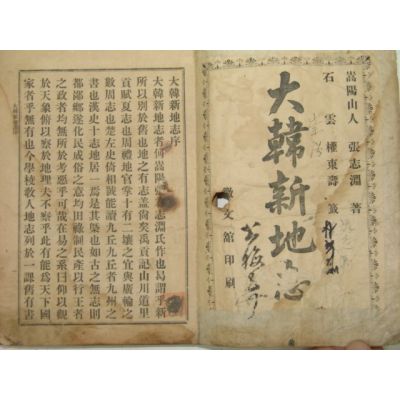 嵩陽山人 張志淵 著
石雲 權東壽 籤
大韓新地志
徽文館印刷
大韓新地志序
大韓新地志者何嵩陽張志淵氏作也曷謂乎新
所以別於舊也地之有志蓋尙矣禹貢記山川道里
貢賦夏志也周禮地官掌十有二壤之宜與廣輪之
數周志也楚左史倚相號能讀九丘九丘者九州之
書也漢史十志地居一焉是其槩也如古之無志則
都鄙鄕遂化民成俗之意均田祿制民產以行王者
之政者均無所於考惡乎可哉在易之系曰仰以觀
於天象俯以察於地理夫不察乎此有能爲天下國
家者乎無有也今學校敎人地志列於一課舊有書